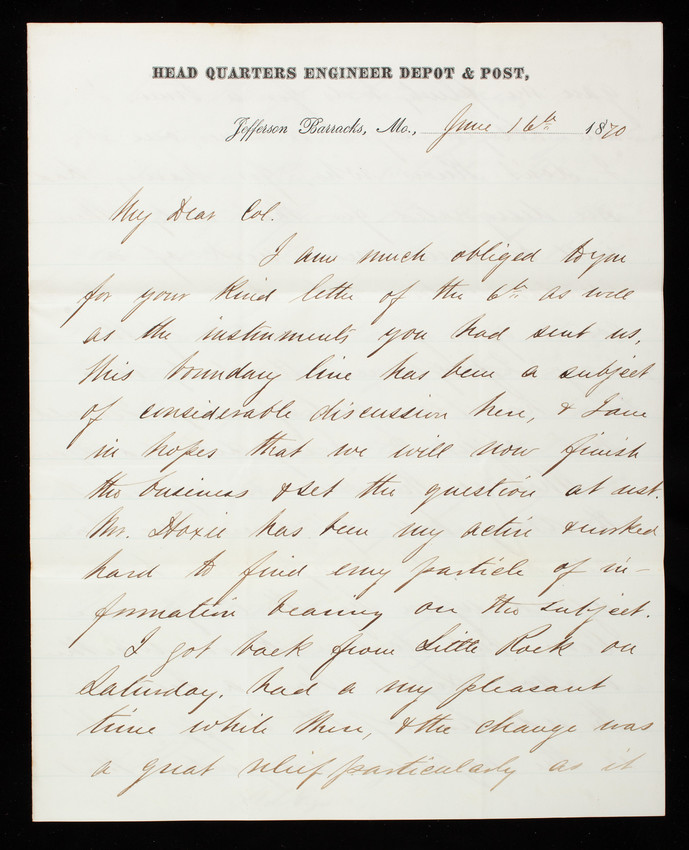 HEAD QUARTERS ENGINEER DEPOT & POST,
Jefferson Barracks, Mo., June 16th 1870
My Dear Col.
I am much obliged to you
for your kind letter of the 6th as well
as the instruments you had sent us,
this boundary line has been a subject
of considerable discussion here, & I am
in hopes that we will now finish
the business & set the question at rest.
Mr. Hoxie has been very active & worked
hard to find every particle of in-
formation bearing on the subject.
I got back from Little Rock on
Saturday. had a very pleasant
time while there, & the change was
a great relief particularly as it